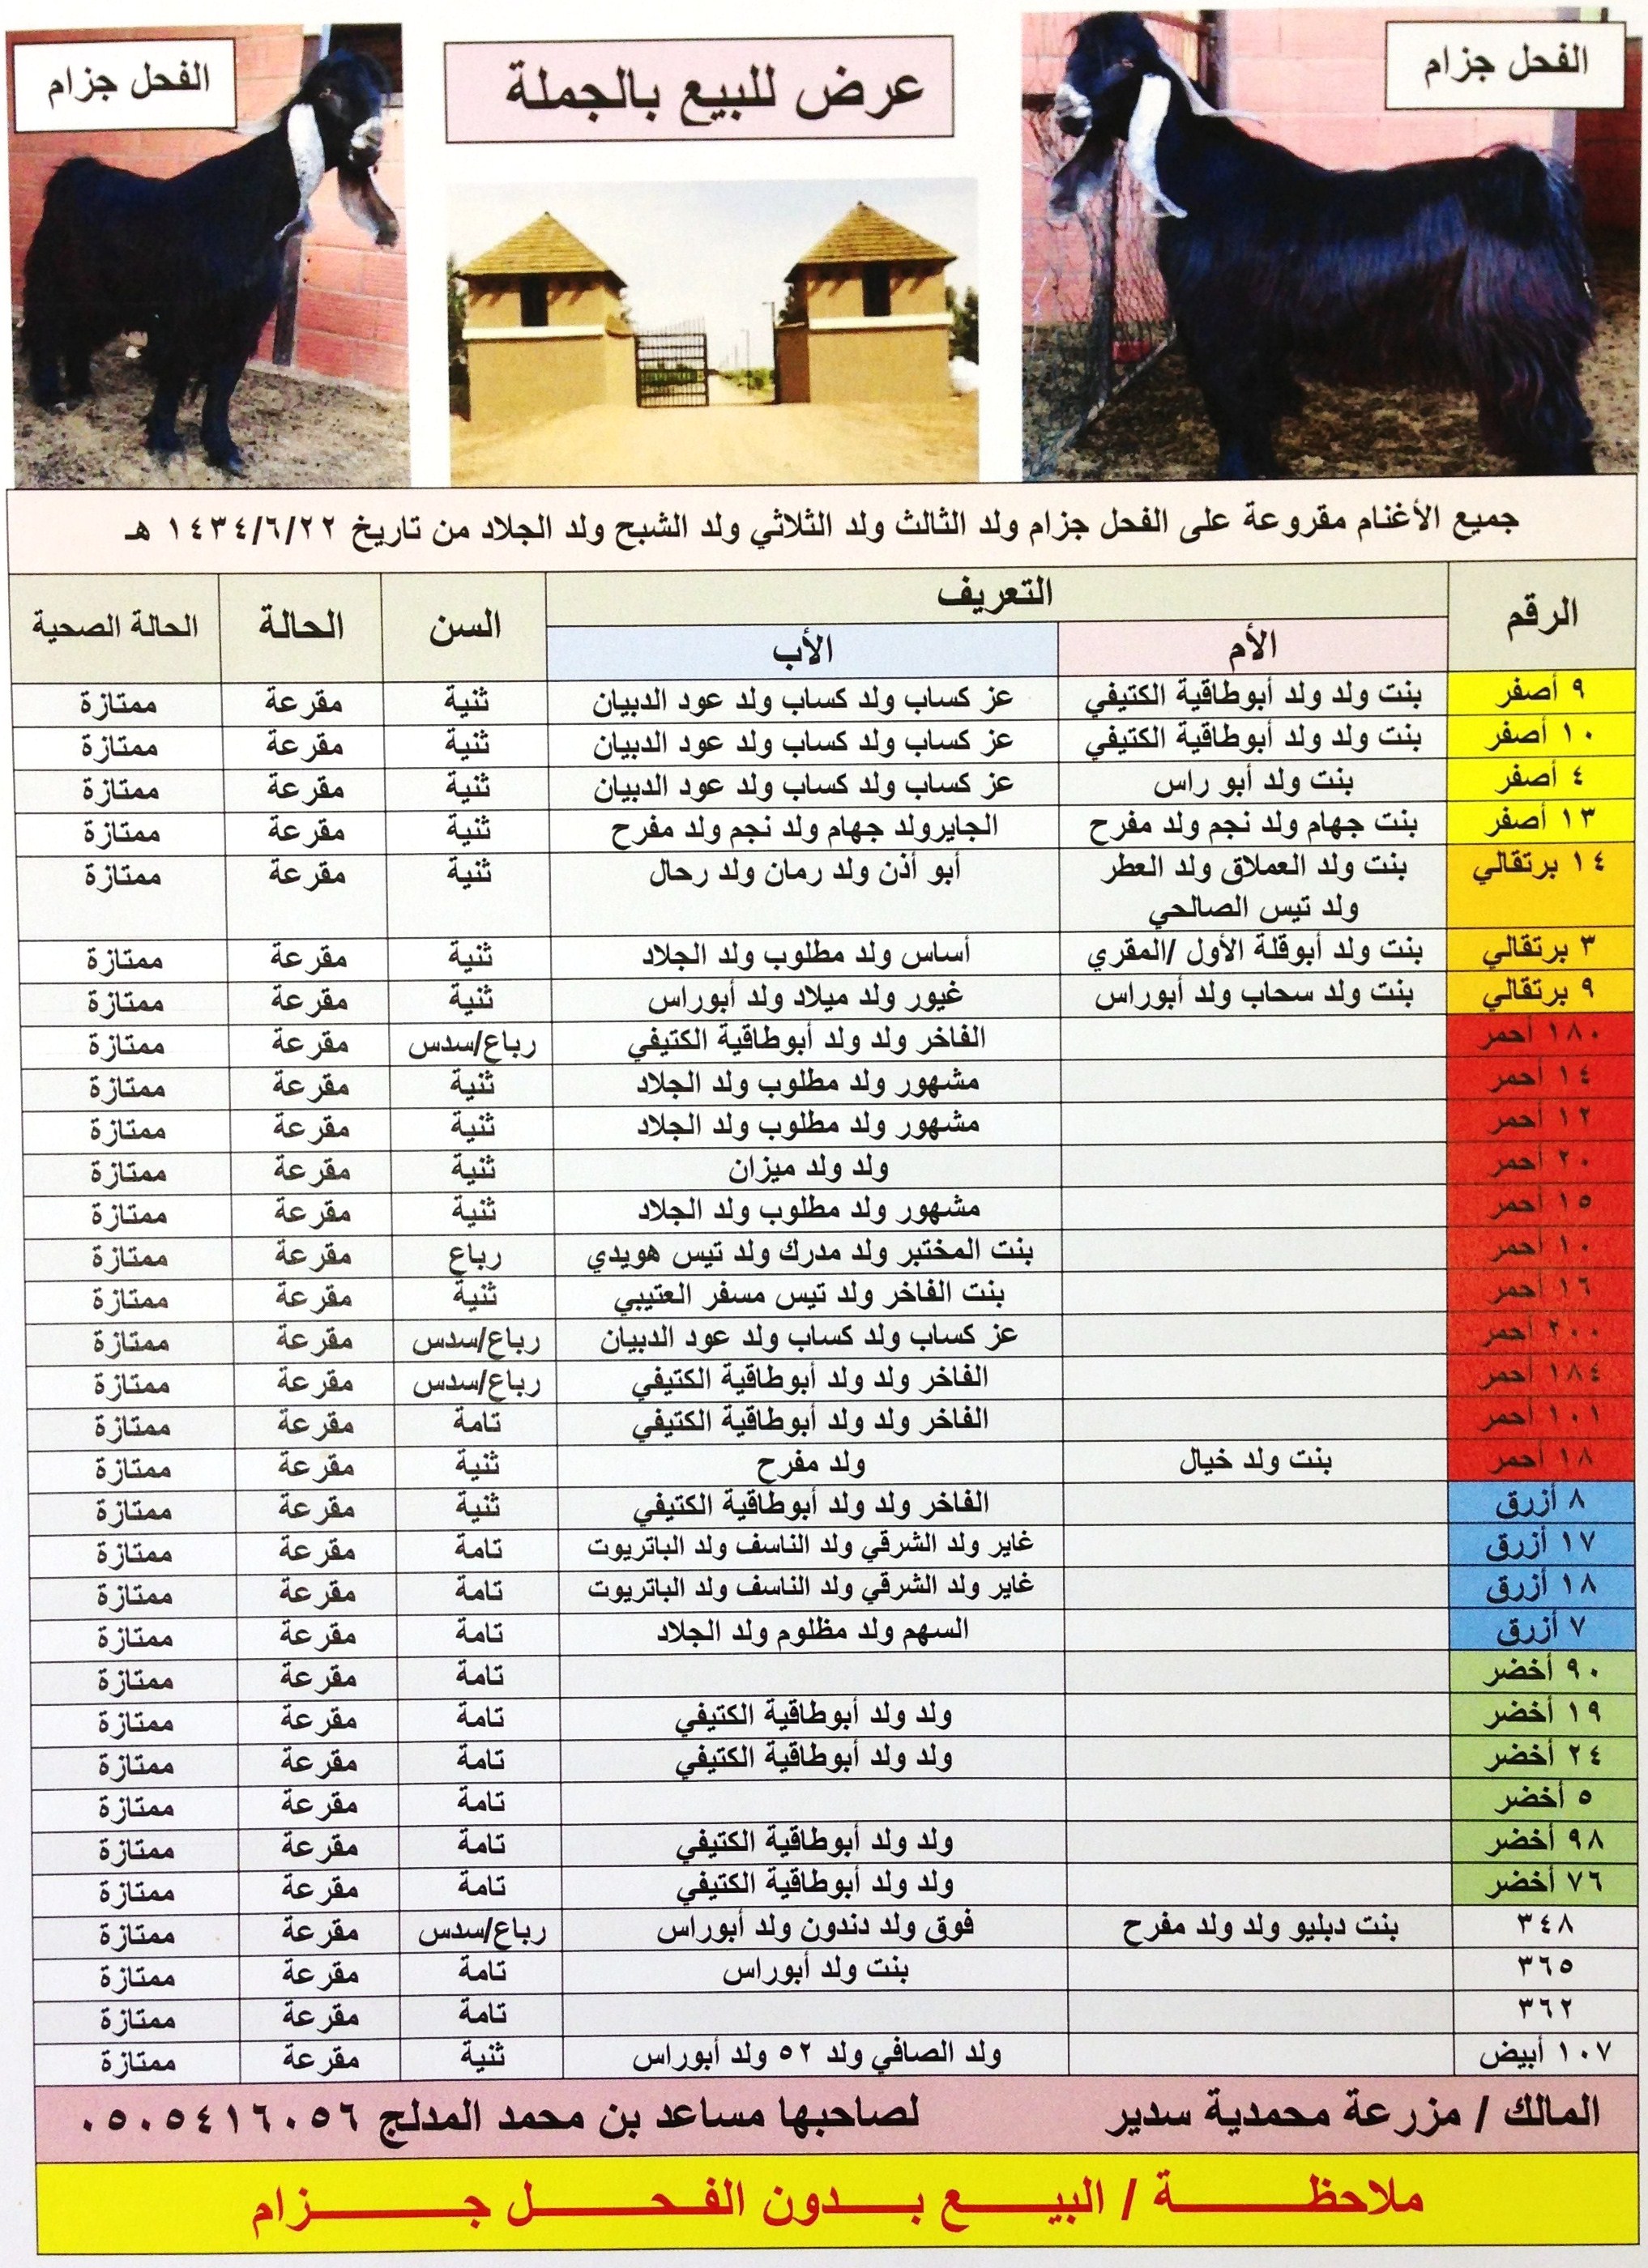 الفحل جزام
عرض للبيع بالجملة
الفحل جزام
جميع الأغنام مقروعة على الفحل جزام ولد الثالث ولد الثلاثي ولد الشبح ولد الجلاد من تاريخ ١٤٣٤/٦/٢٢ هـ
الرقم التعريف السن الحالة الحالة الصحية
الأم الأب
٩ أصفر بنت ولد ولد أبوطاقية الكتيفي عز كساب ولد كساب ولد عود الدبيان ثنية مقرعة ممتازة
١٠ أصفر بنت ولد ولد أبوطاقية الكتيفي عز كساب ولد كساب ولد عود الدبيان ثنية مقرعة ممتازة
٤ أصفر بنت ولد أبو راس عز كساب ولد كساب ولد عود الدبيان ثنية مقرعة ممتازة
١٣ أصفر بنت جهام ولد نجم ولد مفرح الجايرولد جهام ولد نجم ولد مفرح ثنية مقرعة ممتازة
١٤ برتقالي بنت ولد العملاق ولد العطر أبو أذن ولد رمان ولد رحال ثنية مقرعة ممتازة
ولد تيس الصالحي
٣ برتقالي بنت ولد أبوقلة الأول /المقري أساس ولد مطلوب ولد الجلاد ثنية مقرعة ممتازة
٩ برتقالي بنت ولد سحاب ولد أبوراس غيور ولد ميلاد ولد أبوراس ثنية مقرعة ممتازة
١٨٠ أحمر الفاخر ولد ولد أبوطاقية الكتيفي رباع/سدس مقرعة ممتازة
١٤ أحمر مشهور ولد مطلوب ولد الجلاد ثنية مقرعة ممتازة
١٢ أحمر مشهور ولد مطلوب ولد الجلاد ثنية مقرعة ممتازة
٢٠ أحمر ولد ولد ميزان ثنية مقرعة ممتازة
١٥ أحمر مشهور ولد مطلوب ولد الجلاد ثنية مقرعة ممتازة
١٠ أحمر بنت المختبر ولد مدرك ولد تيس هويدي رباع مقرعة ممتازة
١٦ أحمر بنت الفاخر ولد تيس مسفر العتيبي ثنية مقرعة ممتازة
٢٠٠ أحمر عز كساب ولد كساب ولد عود الدبيان رباع/سدس مقرعة ممتازة
١٨٤ أحمر الفاخر ولد ولد أبوطاقية الكتيفي رباع/سدس مقرعة ممتازة
١٠١ أحمر الفاخر ولد ولد أبوطاقية الكتيفي تامة مقرعة ممتازة
١٨ أحمر بنت ولد خيال ولد مفرح ثنية مقرعة ممتازة
٨ أزرق الفاخر ولد ولد أبوطاقية الكتيفي ثنية مقرعة ممتازة
١٧ أزرق غاير ولد الشرقي ولد الناسف ولد الباتريوت تامة مقرعة ممتازة
١٨ أزرق غاير ولد الشرقي ولد الناسف ولد الباتريوت تامة مقرعة ممتازة
٧ أزرق السهم ولد مظلوم ولد الجلاد تامة مقرعة ممتازة
٩٠ أخضر تامة مقرعة ممتازة
١٩ أخضر ولد ولد أبوطاقية الكتيفي تامة مقرعة ممتازة
٢٤ أخضر ولد ولد أبوطاقية الكتيفي تامة مقرعة ممتازة
٥ أخضر تامة مقرعة ممتازة
٩٨ أخضر ولد ولد أبوطاقية الكتيفي تامة مقرعة ممتازة
٧٦ أخضر ولد ولد أبوطاقية الكتيفي تامة مقرعة ممتازة
٣٤٨ بنت دبليو ولد ولد مفرح فوق ولد دندون ولد أبوراس رباع/سدس مقرعة ممتازة
٣٦٥ بنت ولد أبوراس تامة مقرعة ممتازة
٣٦٢ تامة مقرعة ممتازة
١٠٧ أبيض ولد الصافي ولد ٥٢ ولد أبوراس ثنية مقرعة ممتازة
المالك / مزرعة محمدية سدير لصاحبها مساعد بن محمد المدلج ٠٥٠٥٤١٦٠٥٦
ملاحظـــة / البيـــع بـــدون الفحـــل جـــزام